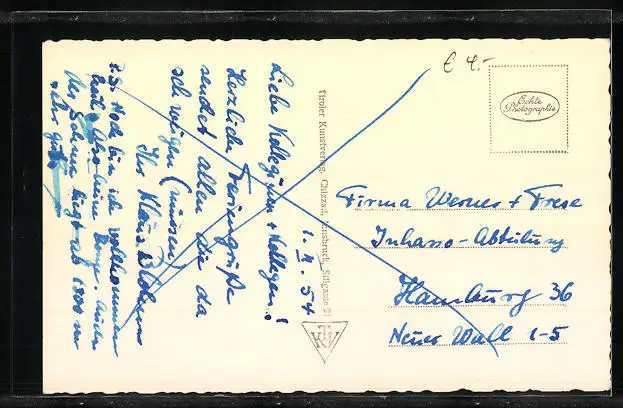 € 4.-
Echte
Photographie
1. . 54
Liebe Kolleginnen + Kollegen!
Herzliche Feriengrüße
sendet allen die da
schwitzen (müssen)
Ihr Klaus
P.S. Noch bin ich vollkommen
Auch
der Schnee liegt ab 1800 m
Tiroler Kunstverlag Chizzali, Innsbruck, Sillgasse 21
TKV
Firma Werner + Frese
Inkasso-Abteilung
Hamburg 36
Neuer Wall 1-5